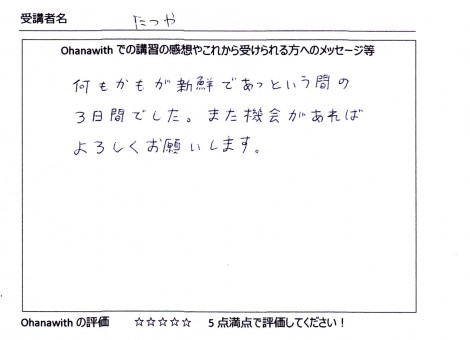 受講者名 たつや
Ohanawith での講習の感想やこれから受けられる方へのメッセージ等
何もかもが新鮮であっという間の
3日間でした。また機会があれば
よろしくお願いします。
Ohanawith の評価 ☆☆☆☆☆ 5 点満点で評価してください！